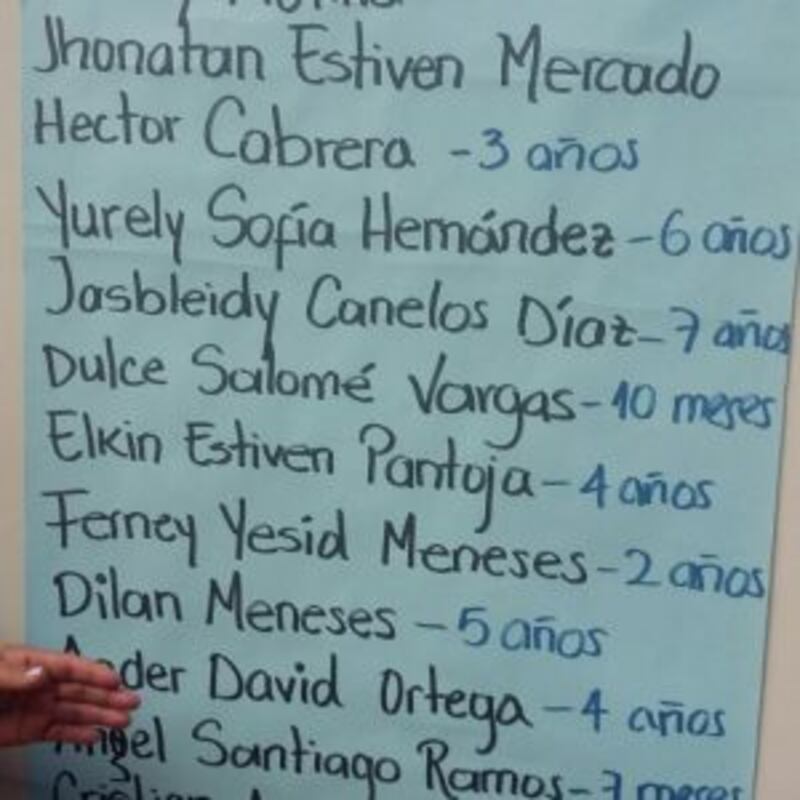 Jhonatan Estiven Mercado
Hector Cabrera - 3 años
Yurely Sofía Hernández - 6 años
Jasbleidy Canelos Díaz - 7 años
Dulce Salomé Vargas - 10 meses
Elkin Estiven Pantoja - 4 años
Ferney Yesid Meneses - 2 años
Dilan Meneses - 5 años
David Ortega - 4 años
Angel Santiago Ramos - 7 meses